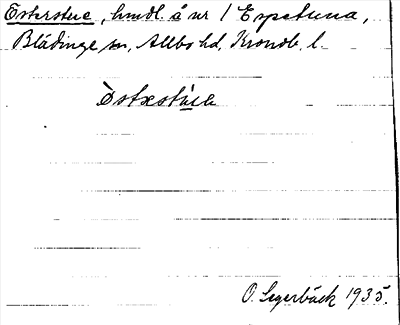 Esterstue, hmdl. å nr 1 Espetuna,
Blädinge sn, Allbo hd, Kronob. l.
O. Segerbäck 1935.